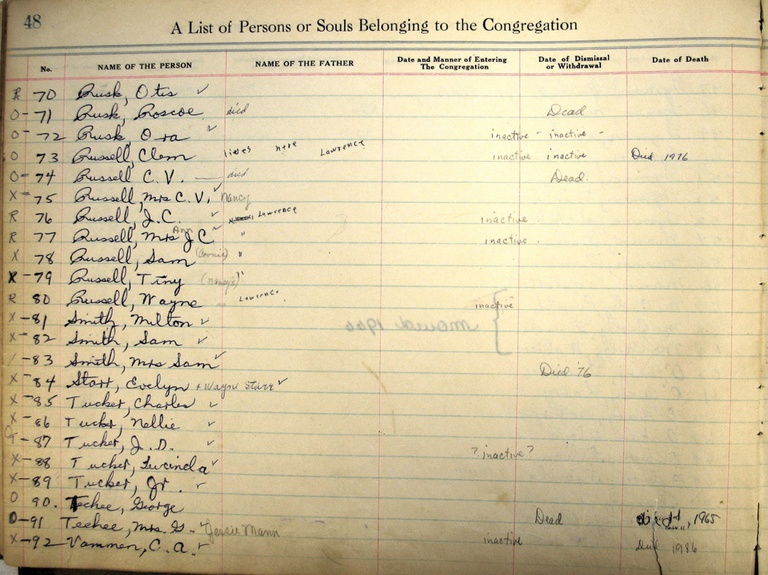 48
A List of Persons or Souls Belonging to the Congregation
No. NAME OF THE PERSON NAME OF THE FATHER Date and Manner of Entering The Congregation Date of Dismissal or Withdrawal Date of Death
R 70 Rusk, Otis ✓
O-71 Rusk, Roscoe died Dead
O-72 Rusk, Ora ✓ inactive - inactive -
O 73 Russell, Clem lives here Lawrence inactive inactive Died 1976
O-74 Russell C. V. — died Dead
X-75 Russell, Mrs C. V. ✓ Nancy
R 76 Russell, J. C. ✓ Lawrence inactive
R 77 Russell, Mrs Ann J C ✓ " inactive
X 78 Russell, Sam (Connie) "
X-79 Russell, Tiny (Nancy's) "
R 80 Russell, Wayne Lawrence inactive
X-81 Smith, Milton ✓
X-82 Smith, Sam ✓
/-83 Smith, Mrs Sam ✓ Died '76
X-84 Starr, Evelyn + Wayne Starr ✓
X-85 Tucker, Charles ✓
X-86 Tucker, Nellie ✓
T-87 Tucker, J. D. ✓
X-88 Tucker, Lucinda ✓ ? inactive ?
X-89 Tucker, Jr. ✓
O 90. Teehee, George
O-91 Teehee, Mrs G. Jessie Mann Dead 1965
X-92 Vammen, C. A. ✓ inactive Died 1986